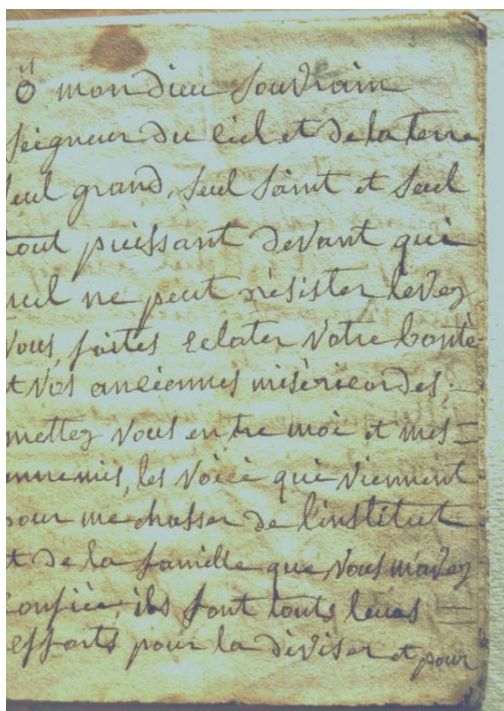 Ô mon dieu Souvrain
Seigneur du ciel et de la terre
seul grand, seul saint et seul
tout puissant devant qui
nul ne peut résister levez
Vous, faites eclater votre bonté
et vos anciennes miséricordes,
mettez vous entre moi et mes=
ennemis, les voici qui viennent
pour me chasser de l'institut
et de la famille que vous m'avez
confiée, ils font touts leurs =
efforts pour la diviser et pour